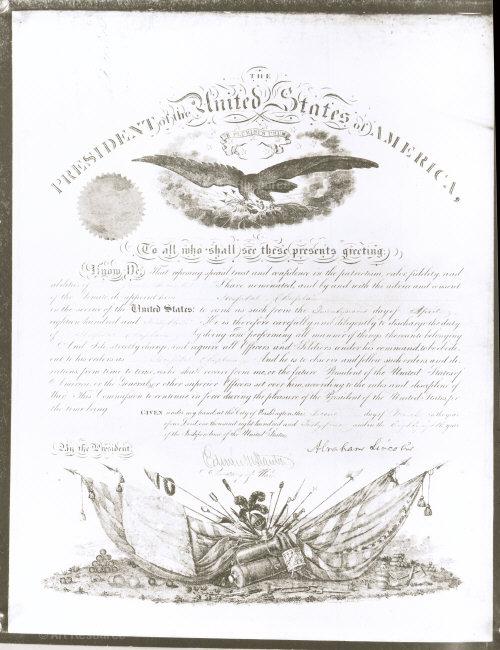 THE
PRESIDENT of the United States of AMERICA,
E PLURIBUS UNUM
To all who shall see these presents greeting
Know Ye, That reposing special trust and confidence in the patriotism, valor, fidelity, and
abilities of I have nominated, and by and with the advice and consent
of the Senate do appoint him Hospital Chaplain
in the service of the United States: to rank as such from the day of April
eighteen hundred and He is therefore carefully and diligently to discharge the duty
of by doing and performing all manner of things thereunto belonging
And I do strictly charge and require all Officers and Soldiers under his command to be obedi-
ent to his orders as And he is to observe and follow such orders and di-
rections from time to time, as he shall receive from me, or the future President of the United States of
America, or the General, or other superior Officers set over him, according to the rules and discipline of
War. This Commission to continue in force during the pleasure of the President of the United States for
the time being.
GIVEN under my hand at the City of Washington this day of in the year
of our Lord one thousand eight hundred and and in the year
of the Independence of the United States.
By the President
Abraham Lincoln
Edwin M Stanton
Secretary of War
© Art Resource